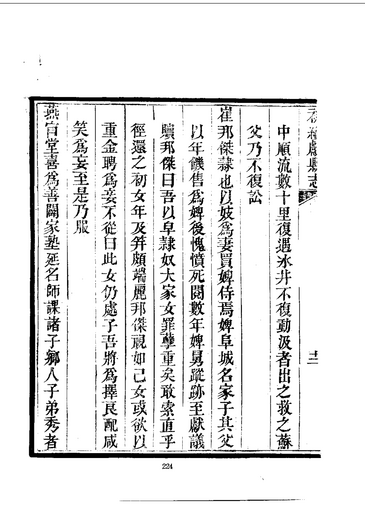 中順流數十里復遇氷井不復動汲者出之救之蘇
父乃不復訟
崔邦傑隷也以妓爲妻買婢侍焉婢阜城名家子其父
以年饑售爲婢後愧憤死閱數年婢舅蹤跡至獻議
贖邦傑曰吾以皁隷奴大家女罪孽重矣敢索直乎
徑還之初女年及笄頗端麗邦傑視如己女或欲以
重金聘爲妾不從曰此女仍處子吾將爲擇良配咸
笑爲妄至是乃服
燕官堂喜爲善闢家塾延名師課諸子鄉人子弟秀者
224